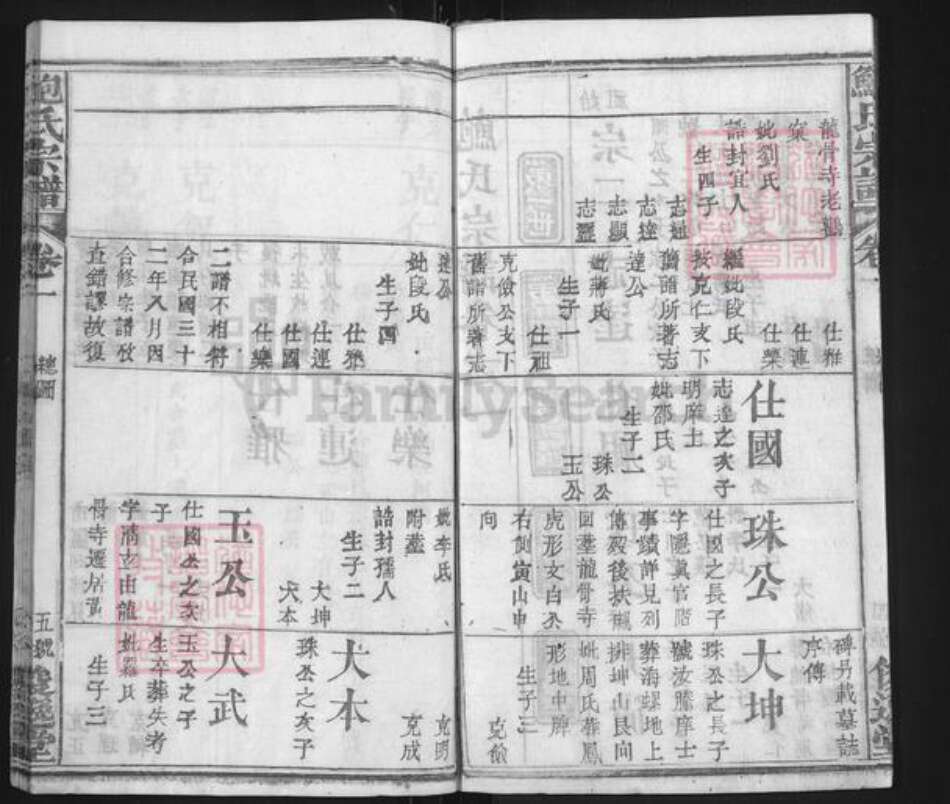 龍骨寺老鸛
窠
妣劉氏
誥封宜人
生四子
志達
志顯
志靈
仕雅
仕連
仕樂
繼妣段氏
扶克仁支下
舊譜所著志
達公
妣蔣氏
生子一
仕祖
克儉公支下
舊譜所著志
仕國
志達之次子
明庠士
妣邵氏
生子二
珠公
玉公
珠公
仕國之長子
字隱真官階
事蹟詳見列
傳歿後扶櫬
回塟龍骨寺
虎形女白公
右側寅山申
向
碑另載墓誌
序傳
大坤
珠公之長子
號汝滕庠士
葬海螺地上
排坤山艮向
妣周氏葬鳳
形地中牌
生子三
克儉
鮑氏宗譜
卷一
達公
妣段氏
生子四
仕雅
仕連
仕國
仕樂
二譜不相符
合民國三十
二年八月因
合修宗譜攷
查錯謬故復
妣李氏
附塟
誥封孺人
生子二
大坤
大本
玉公
仕國公之次
子
字滴玄由龍
骨寺遷居黃
克明
克成
大本
珠公之次子
大武
玉公之子
生卒葬失考
妣羅氏
生子三
鮑氏宗譜
卷一
總圖
五號
FamilySearch